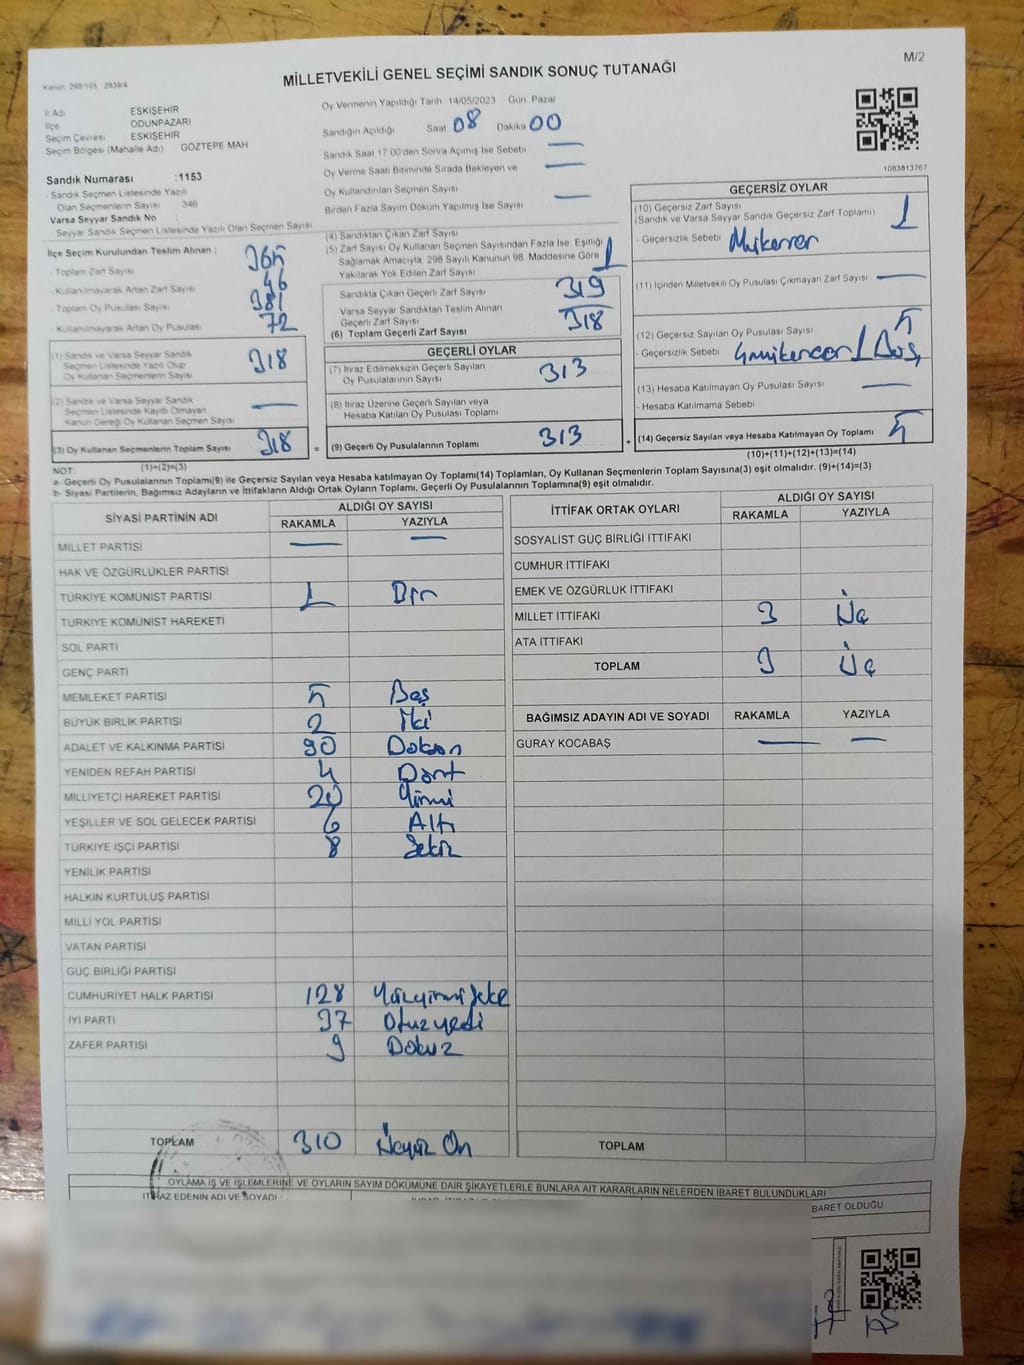 M/2
Kanun: 298/105 2839/4
MİLLETVEKİLİ GENEL SEÇİMİ SANDIK SONUÇ TUTANAĞI
İl Adı ESKİŞEHİR
İlçe ODUNPAZARI
Seçim Çevresi ESKİŞEHİR
Seçim Bölgesi (Mahalle Adı) GÖZTEPE MAH
Sandık Numarası :1153
- Sandık Seçmen Listesinde Yazılı
Olan Seçmenlerin Sayısı 346
Varsa Seyyar Sandık No :
- Seyyar Sandık Seçmen Listesinde Yazılı Olan Seçmen Sayısı
Oy Vermenin Yapıldığı Tarih 14/05/2023 Gün Pazar
Sandığın Açıldığı Saat 08 Dakika 00
Sandık Saat 17.00'den Sonra Açılmış İse Sebebi —
Oy Verme Saati Bitiminde Sırada Bekleyen ve —
Oy Kullandırılan Seçmen Sayısı
Birden Fazla Sayım Döküm Yapılmış İse Sayısı —
1083813767
İlçe Seçim Kurulundan Teslim Alınan :
- Toplam Zarf Sayısı 365
- Kullanılmayarak Artan Zarf Sayısı 46
- Toplam Oy Pusulası Sayısı 381
- Kullanılmayarak Artan Oy Pusulası 72
(1) Sandık ve Varsa Seyyar Sandık
Seçmen Listesinde Yazılı Olup
Oy Kullanan Seçmenlerin Sayısı 318
(2) Sandık ve Varsa Seyyar Sandık
Seçmen Listesinde Kayıtlı Olmayan
Kanun Gereği Oy Kullanan Seçmen Sayısı —
(3) Oy Kullanan Seçmenlerin Toplam Sayısı 318 =
(1)+(2)=(3)
(4) Sandıktan Çıkan Zarf Sayısı
(5) Zarf Sayısı Oy Kullanan Seçmen Sayısından Fazla İse, Eşitliği
Sağlamak Amacıyla, 298 Sayılı Kanunun 98. Maddesine Göre 1
Yakılarak Yok Edilen Zarf Sayısı
Sandıkta Çıkan Geçerli Zarf Sayısı 319
Varsa Seyyar Sandıktan Teslim Alınan
Geçerli Zarf Sayısı
(6) Toplam Geçerli Zarf Sayısı 318
GEÇERLİ OYLAR
(7) İtiraz Edilmeksizin Geçerli Sayılan
Oy Pusulalarının Sayısı 313
(8) İtiraz Üzerine Geçerli Sayılan veya
Hesaba Katılan Oy Pusulası Toplamı
(9) Geçerli Oy Pusulalarının Toplamı 313 +
GEÇERSİZ OYLAR
(10) Geçersiz Zarf Sayısı
(Sandık ve Varsa Seyyar Sandık Geçersiz Zarf Toplamı) 1
- Geçersizlik Sebebi Mükerrer
(11) İçinden Milletvekili Oy Pusulası Çıkmayan Zarf Sayısı —
(12) Geçersiz Sayılan Oy Pusulası Sayısı 5
- Geçersizlik Sebebi 1 Boş
(13) Hesaba Katılmayan Oy Pusulası Sayısı —
- Hesaba Katılmama Sebebi
(14) Geçersiz Sayılan veya Hesaba Katılmayan Oy Toplamı 5
(10)+(11)+(12)+(13)=(14)
NOT:
a- Geçerli Oy Pusulalarının Toplamı(9) ile Geçersiz Sayılan veya Hesaba katılmayan Oy Toplamı(14) Toplamları, Oy Kullanan Seçmenlerin Toplam Sayısına(3) eşit olmalıdır. (9)+(14)=(3)
b- Siyasi Partilerin, Bağımsız Adayların ve İttifakların Aldığı Ortak Oyların Toplamı, Geçerli Oy Pusulalarının Toplamına(9) eşit olmalıdır.
SİYASİ PARTİNİN ADI ALDIĞI OY SAYISI
RAKAMLA YAZIYLA
MİLLET PARTİSİ — —
HAK VE ÖZGÜRLÜKLER PARTİSİ
TÜRKİYE KOMÜNİST PARTİSİ 1 Bir
TÜRKİYE KOMÜNİST HAREKETİ
SOL PARTİ
GENÇ PARTİ
MEMLEKET PARTİSİ 5 Beş
BÜYÜK BİRLİK PARTİSİ 2 İki
ADALET VE KALKINMA PARTİSİ 90 Doksan
YENİDEN REFAH PARTİSİ 4 Dört
MİLLİYETÇİ HAREKET PARTİSİ 20 Yirmi
YEŞİLLER VE SOL GELECEK PARTİSİ 6 Altı
TÜRKİYE İŞÇİ PARTİSİ 8 Sekiz
YENİLİK PARTİSİ
HALKIN KURTULUŞ PARTİSİ
MİLLİ YOL PARTİSİ
VATAN PARTİSİ
GÜÇ BİRLİĞİ PARTİSİ
CUMHURİYET HALK PARTİSİ 128
İYİ PARTİ 37 Otuzyedi
ZAFER PARTİSİ 9 Dokuz
TOPLAM 310 Üçyüz On
İTTİFAK ORTAK OYLARI ALDIĞI OY SAYISI
RAKAMLA YAZIYLA
SOSYALİST GÜÇ BİRLİĞİ İTTİFAKI
CUMHUR İTTİFAKI
EMEK VE ÖZGÜRLÜK İTTİFAKI
MİLLET İTTİFAKI 3 Üç
ATA İTTİFAKI
TOPLAM 3 Üç
BAĞIMSIZ ADAYIN ADI VE SOYADI RAKAMLA YAZIYLA
GÜRAY KOCABAŞ — —
TOPLAM
OYLAMA İŞ VE İŞLEMLERİNE VE OYLARIN SAYIM DÖKÜMÜNE DAİR ŞİKAYETLERLE BUNLARA AİT KARARLARIN NELERDEN İBARET BULUNDUKLARI
İTİRAZ EDENİN ADI VE SOYADI
BARET OLDUĞU